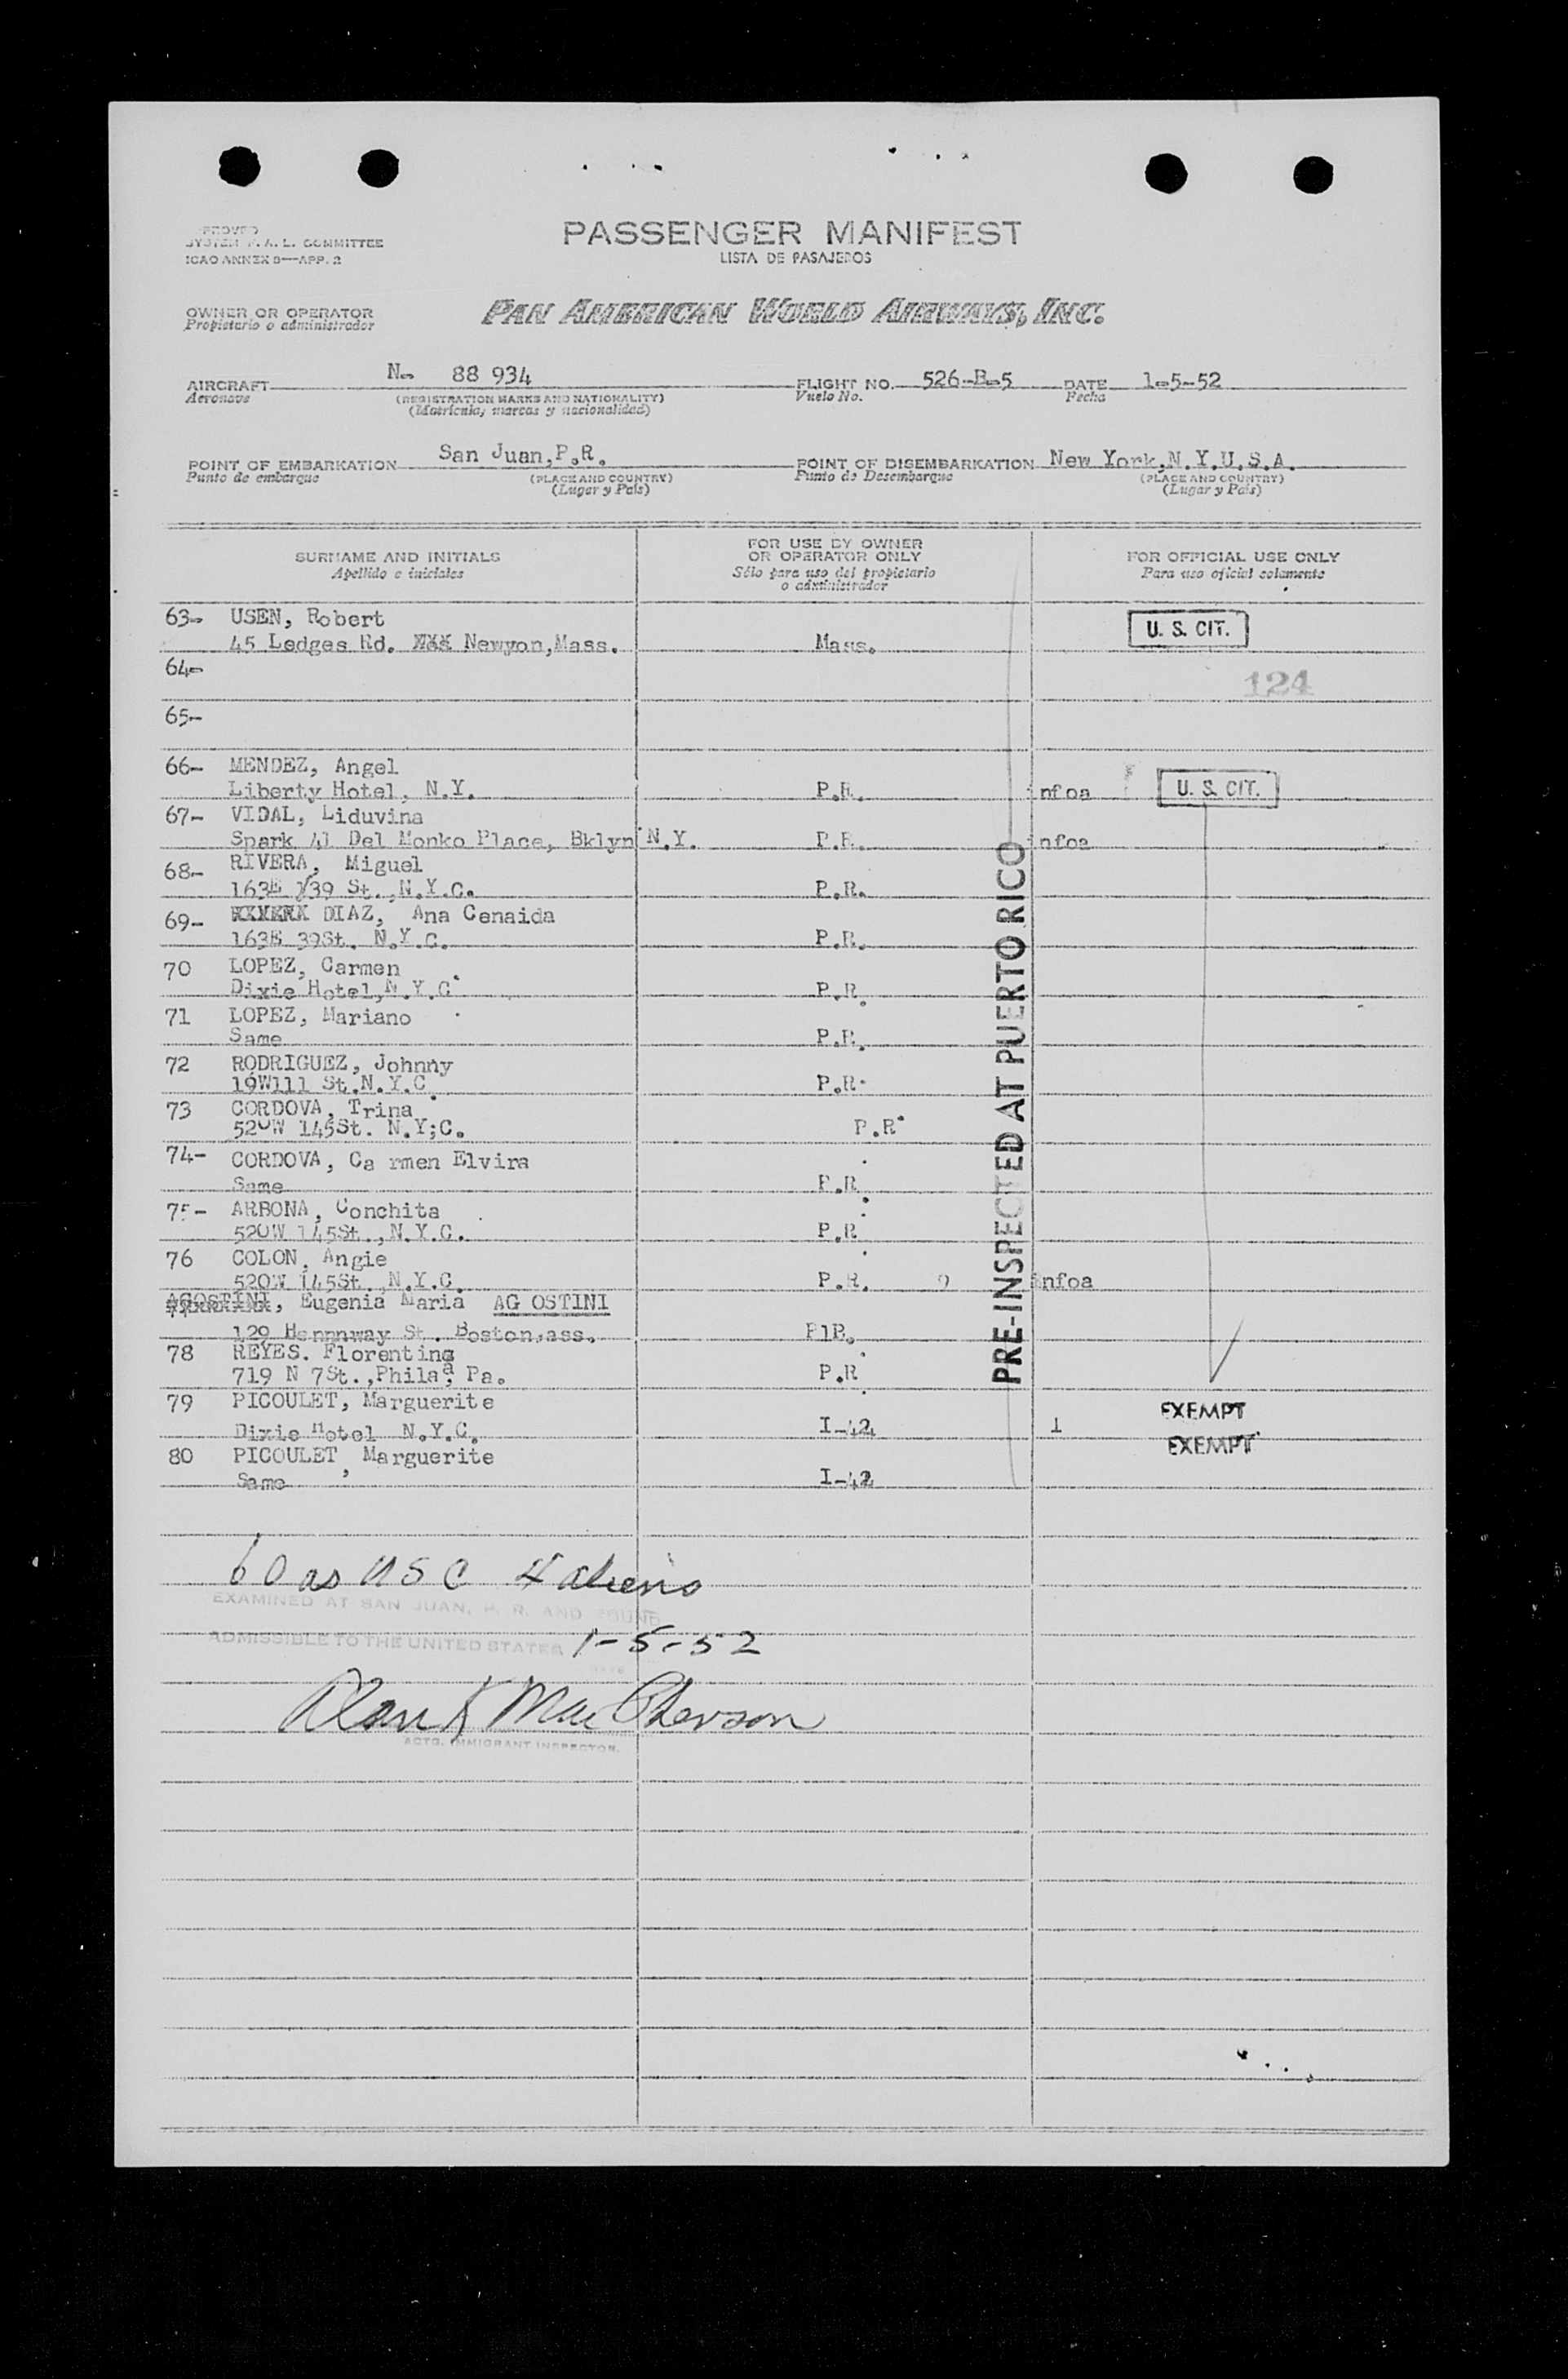 SYSTEM F. A. L. COMMITTEE
ICAO ANNEX 9—APP. 2
PASSENGER MANIFEST
LISTA DE PASAJEROS
OWNER OR OPERATOR
Propietario o administrador
PAN AMERICAN WORLD AIRWAYS, INC.
AIRCRAFT N- 88 934 FLIGHT NO. 526-B-5 DATE 1-5-52
Aeronave (REGISTRATION MARKS AND NATIONALITY) Vuelo No. Fecha
(Matrícula, marcas y nacionalidad)
POINT OF EMBARKATION San Juan,P.R. POINT OF DISEMBARKATION New York,N.Y.U.S.A.
Punto de embarque (PLACE AND COUNTRY) Punto de Desembarque (PLACE AND COUNTRY)
(Lugar y País) (Lugar y País)
SURNAME AND INITIALS FOR USE BY OWNER OR OPERATOR ONLY FOR OFFICIAL USE ONLY
Apellido e iniciales Sólo para uso del propietario o administrador Para uso oficial solamente
63- USEN, Robert U. S. CIT.
45 Ledges Rd. Newyon,Mass. Mass.
64- 124
65-
66- MENDEZ, Angel
Liberty Hotel, N.Y. P.R. infoa U. S. CIT.
67- VIDAL, Liduvina
Spark 41 Del Monko Place, Bklyn N.Y. P.R. infoa
68- RIVERA, Miguel
163E 139 St.,N.Y.C. P.R.
69- DIAZ, Ana Cenaida
163E 39St. N.Y.C. P.R.
70 LOPEZ, Carmen
Dixie Hotel,N.Y.C. P.R.
71 LOPEZ, Mariano
Same P.R.
72 RODRIGUEZ, Johnny
19W111 St.N.Y.C. P.R.
73 CORDOVA, Trina
520W 145St. N.Y;C. P.R.
74- CORDOVA, Ca rmen Elvira
Same P.R.
75- ARBONA, Conchita
520W 145St.,N.Y.C. P.R.
76 COLON, Angie
520W 145St.,N.Y.C. P.R. infoa
AGOSTINI, Eugenia Maria AG OSTINI
129 Hennnway St. Boston,ass. P1R.
78 REYES. Florentina
719 N 7St.,Phila, Pa. P.R.
79 PICOULET, Marguerite EXEMPT
Dixie Hotel N.Y.C. I-42 1
80 PICOULET, Marguerite EXEMPT
Same I-42
PRE-INSPECTED AT PUERTO RICO
60 as USC 4 aliens
EXAMINED AT SAN JUAN, P. R. AND FOUND
ADMISSIBLE TO THE UNITED STATES 1-5-52
DATE
Alan K MacPherson
ACTG. IMMIGRANT INSPECTOR.